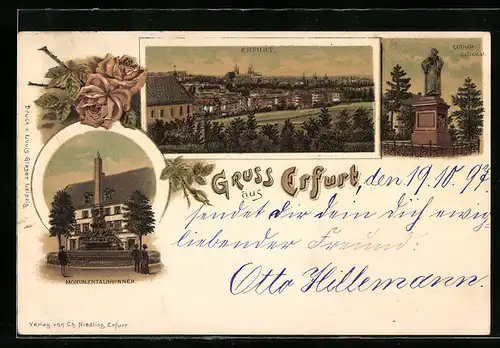 ERFURT.
LUTHER-
DENKMAL
Druck v. Louis Glaser Leipzig.
GRUSS aus Erfurt, den 19.10.97
sendet Dir dem Dich ewig
liebender Freund:
Otto Hillemann.
MONUMENTALBRUNNEN.
Verlag von Ch. Niedling, Erfurt.